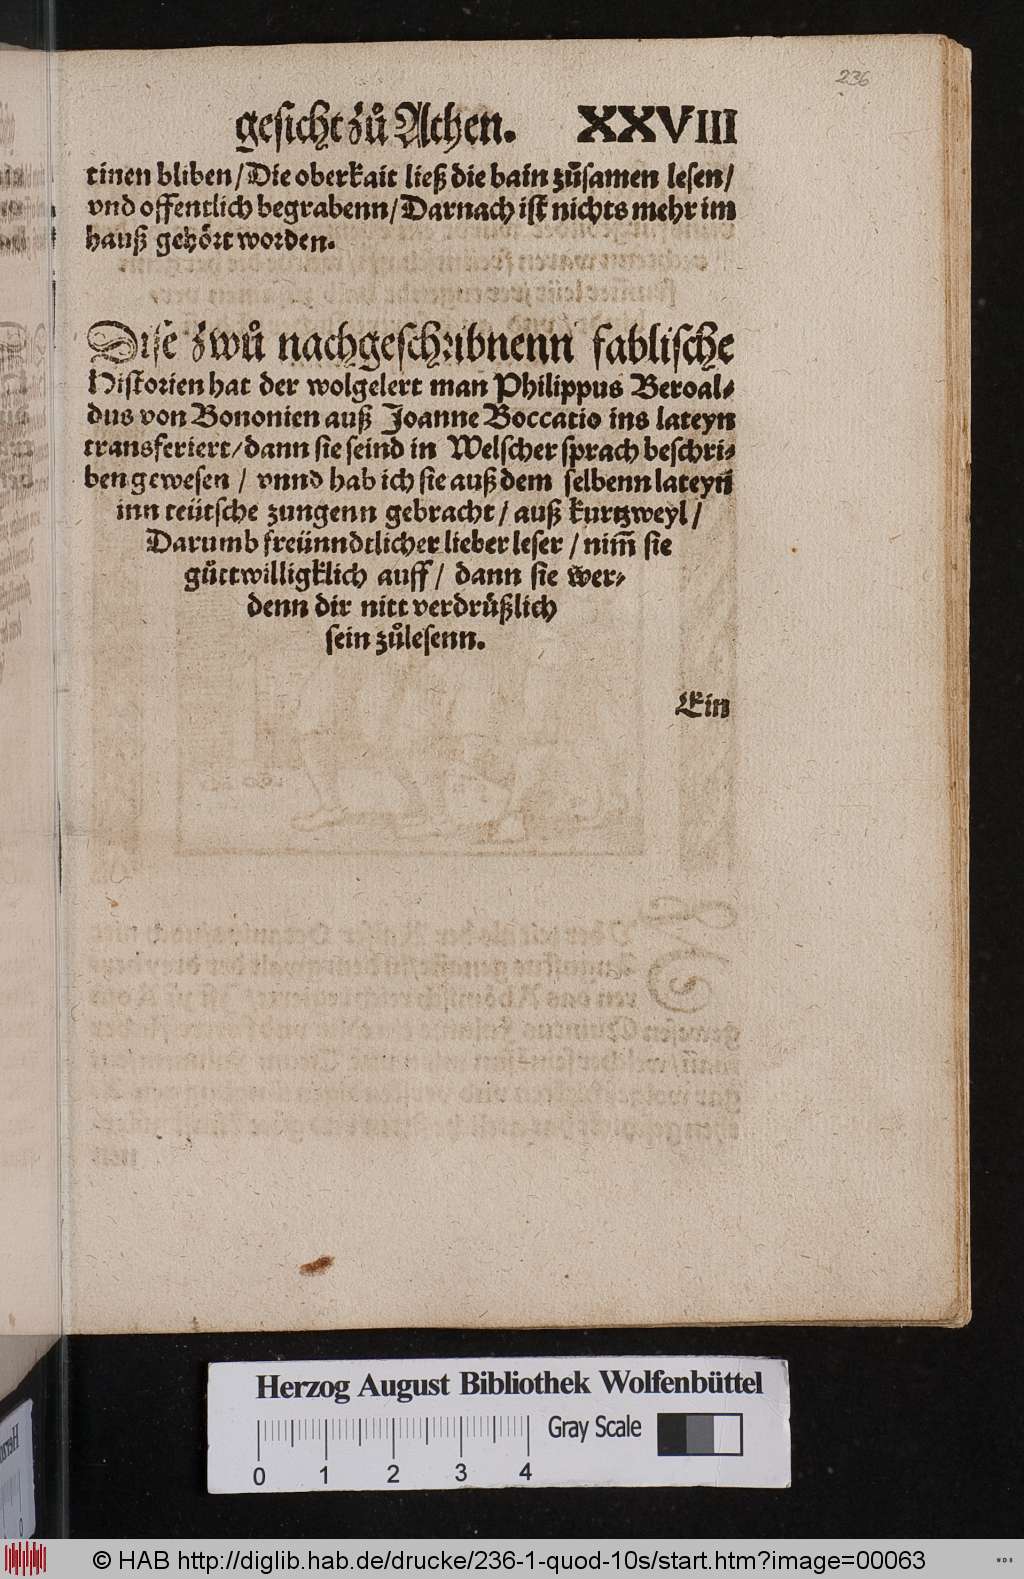 236
gesicht zuͦ Achen. XXVIII
tinen bliben / Die oberkait ließ die bain zuͦsamen lesen /
vnd offentlich begrabenn / Darnach ist nichts mehr im
hauß gehoͤrt worden.
Dise zwuͦ nachgeschribnenn fablische
Historien hat der wolgelert man Philippus Beroal⸗
dus von Bononien auß Joanne Boccatio ins lateyn
transferiert / dann sie seind in Welscher sprach beschri⸗
ben gewesen / vnnd hab ich sie auß dem selbenn lateyn̄
inn teütsche zungenn gebracht / auß kurtzweyl /
Darumb freünndtlicher lieber leser / nim̄ sie
guͤttwilligklich auff / dann sie wer⸗
denn dir nitt verdruͤßlich
sein zuͦlesenn.
Ein
Herzog August Bibliothek Wolfenbüttel
Gray Scale
0 1 2 3 4
© HAB http://diglib.hab.de/drucke/236-1-quod-10s/start.htm?image=00063
WDB